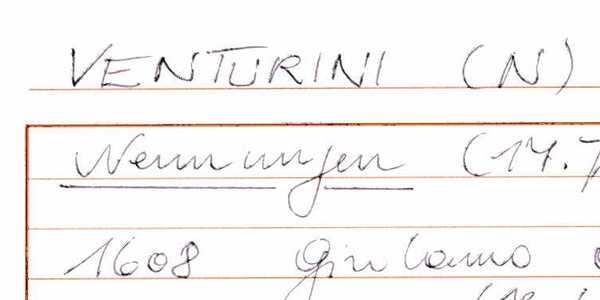 VENTURINI (N)
Nennungen (17.7
1608 Giulamo